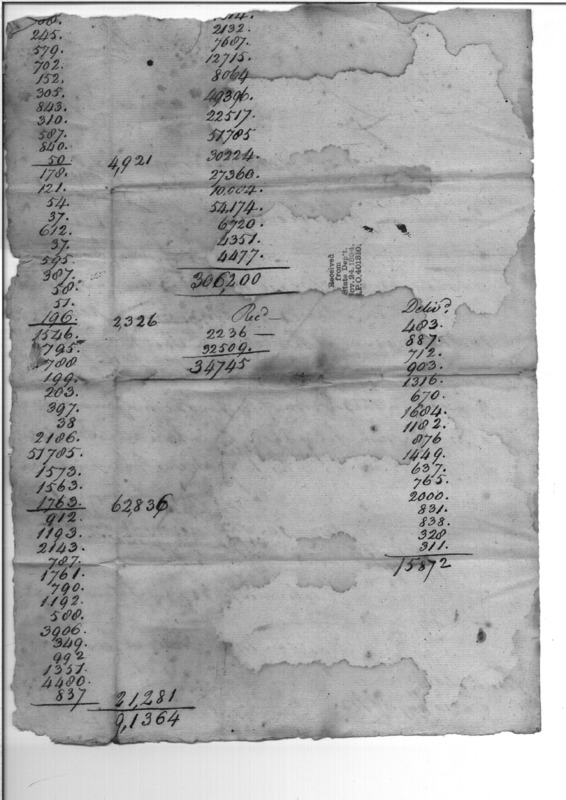 245.
579.
702.
152.
305.
843.
310.
587.
840.
50 4,921
178.
121.
54
37.
612.
37.
595.
387.
58.
51.
196. 2,326
1546.
795.
788
199.
203.
397.
38
2186.
51785.
1573.
1563.
1763. 62,836
912.
1193.
2143.
787.
1761
790.
1192
588.
3906.
349.
992
1357.
4480.
837 21,281
9,1364
2132.
7687.
12715.
8064
49396.
22517.
51785
30224.
27360.
10.004.
54.174
6720.
4351.
4477.
306,200
Rec'd
2236
32509.
34745
Received
from
State Dep't.
Deliv'd.
483.
887.
712.
903.
1316.
670.
1684.
1182.
876
1449.
637.
765.
2000.
831.
838.
328
311.
15872